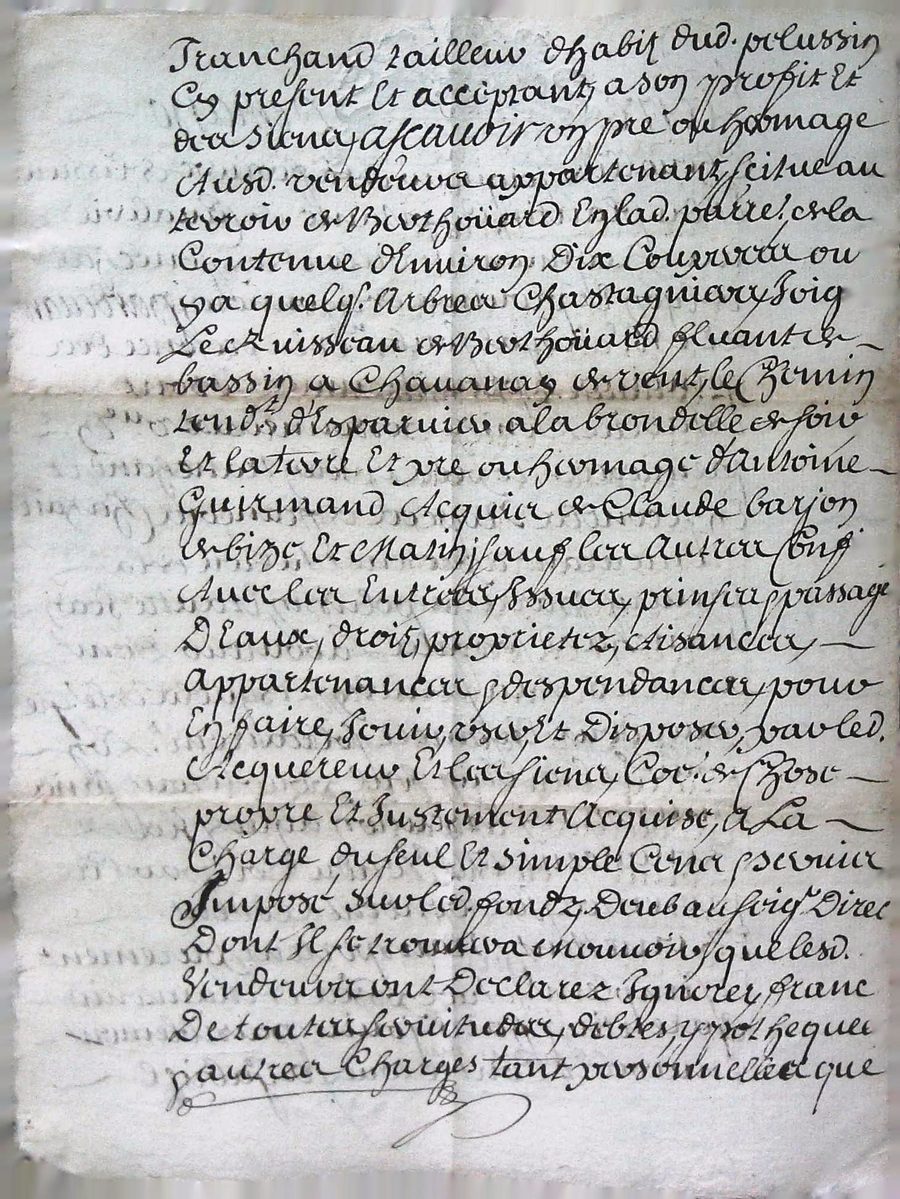 Tranchand tailleur dhabit dud. pelussin
Cy present Et acceptant, a son proffit Et
des siens, ascauoir vn pré ou hermage
Ausd. vendeurs appartenant, scitue au
terroir de Berthoüard En lad. parre. de la
Contenue d'Enuiron Dix Couperees ou
y a quelqs. Arbres Chastaguiers, Joig
Le Ruisseau de Berthoüard ffluant de
bassin a Chauanay de vent, le Chemin
tendt. d'Esparuier a la brondelle de soir
Et la terre Et pre ou hermage d'Antoine
Guirmand Acquis de Claude barjon
de bize Et Matin, sauf les Autres Conf
Auec les Entrees, Issues, prinses, passage
D'Eaux, droit, proprietez, Aisances,
appartenances & despendances, pour
En faire, Jouir, vser, Et Disposer, par led.
Acquereur Et les siens, Coe. de Chose
propre Et Justement Acquise, a La
Charge du seul Et simple Cens & seruis
Imposé sur led. fondz Deub au seigr. Direc
Dont Il se trouuera Mouuoir, que lesd.
Vendeurs ont Declarez Ignorer, franc
De toutes seruitudes, debtes, ypotheques
& autres Charges tant personnelles que